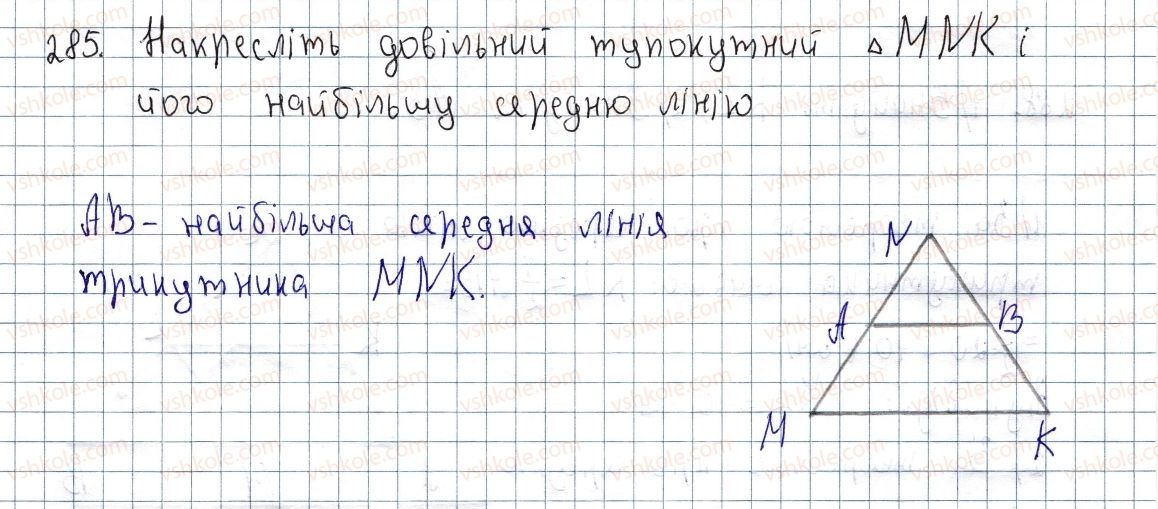 285. Накресліть довільний тупокутний △MNK і
його найбільшу середню лінію
AB - найбільша середня лінія
трикутника MNK.
N
A B
M K
vshkole.com